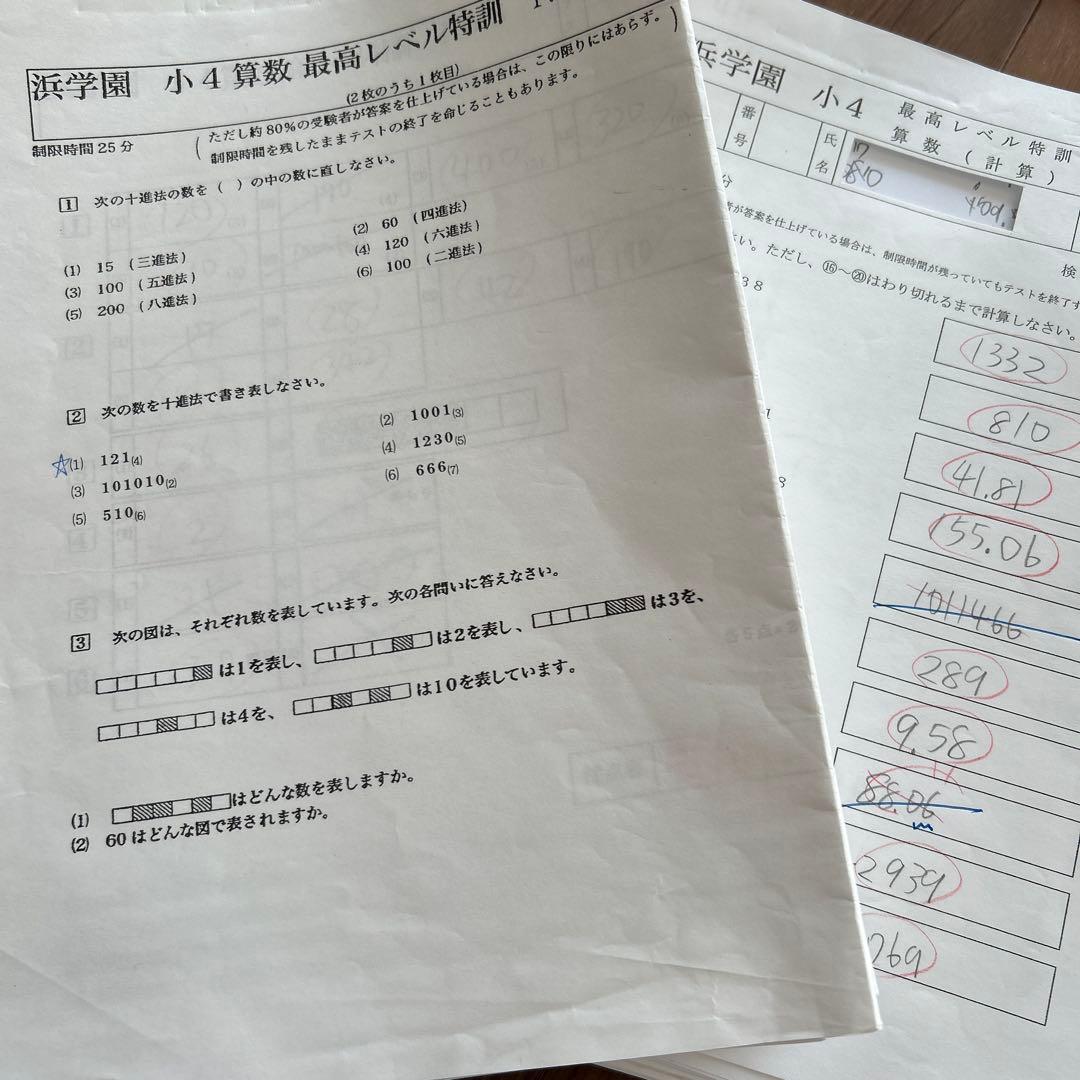 浜学園 小4算数 最高レベル特訓
(2枚のうち1枚目)
制限時間25分
(ただし約80%の受験者が答案を仕上げている場合は、この限りにはあらず。
制限時間を残したままテストの終了を命じることもあります。)
1 次の十進法の数を( )の中の数に直しなさい。
(1) 15 (三進法)
(2) 60 (四進法)
(3) 100 (五進法)
(4) 120 (六進法)
(5) 200 (八進法)
(6) 100 (二進法)
2 次の数を十進法で書き表しなさい。
☆(1) 121(4)
(2) 1001(3)
(3) 101010(2)
(4) 1230(5)
(5) 510(6)
(6) 666(7)
3 次の図は、それぞれ数を表しています。次の各問いに答えなさい。
は1を表し、 は2を表し、 は3を、
は4を、 は10を表しています。
(1) はどんな数を表しますか。
(2) 60はどんな図で表されますか。
浜学園 小4 最高レベル特訓
算数(計算)
番号
氏名
810
分
者が答案を仕上げている場合は、制限時間が残っていてもテストを終了す
さい。ただし、⑯～⑳はわり切れるまで計算しなさい。
検
38
1332
810
41.81
155.06
1011466
289
9.58
88.06
2939
769